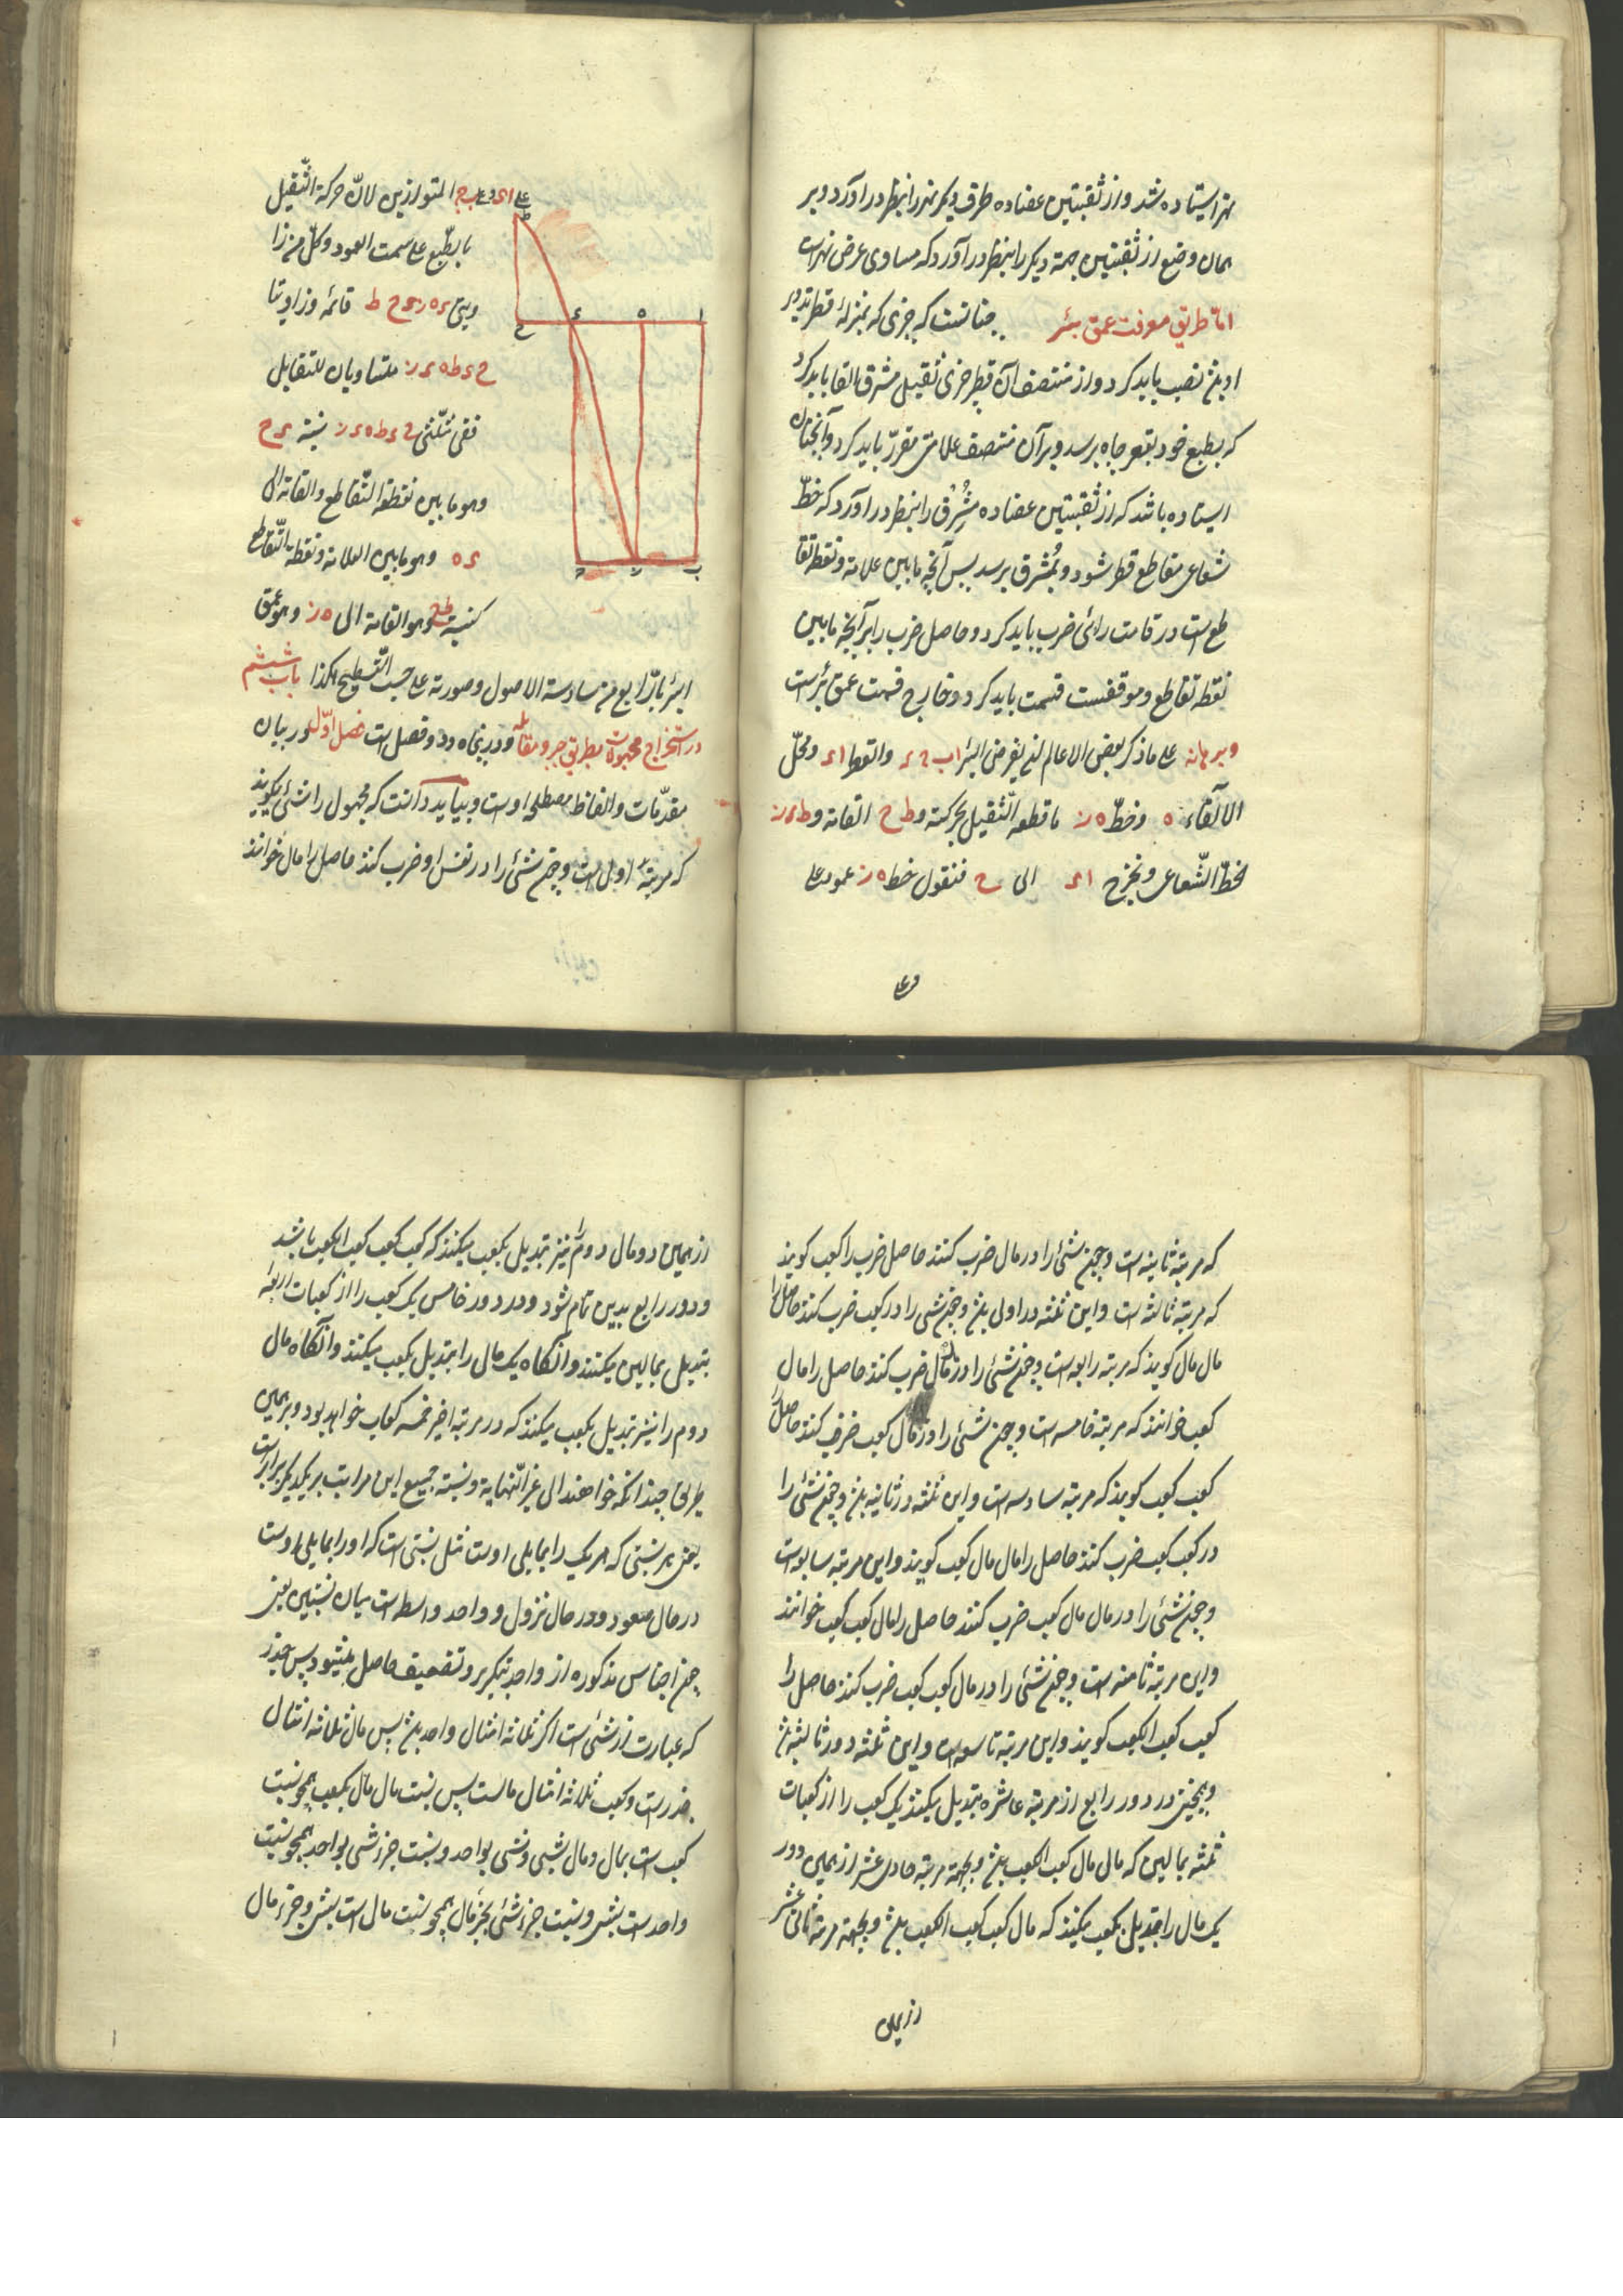 نهر ایستاده شد و از ثقبتین عضاده طرف دیگر نهر را بنظر در آورد و بر
همان وضع از ثقبتین جهة دیگر را بنظر در آورد که مساوی عرض نهر است
اما طریق معرفت عمق بئر چنانست که چیزی که بمنزلهٔ قطر تدویر
او باشد نصب باید کرد و از منتصف آن قطر چیزی ثقیل مشرق القا باید کرد
که بطبع خود بقعر چاه برسد و بر آن منتصف علامتی مقرّر باید کرد و آنچنان
ایستاده باشد که از ثقبتین عضاده مُشرق را بنظر در آورد که خطّ
شعاعی مقاطع قطر شود و بمُشرق برسد پس آنچه مابین علامة و نقطه تقا
طع است در قامت رائی ضرب باید کرد و حاصل ضرب را بر آنچه مابین
نقطه تقاطع و موقفست قسمت باید کرد و خارج قسمت عمق بئر است
و برهانه علی ما ذکر بعض الاعاظم لنفرض البئر ا ب ج ء والقطر ا ء و محلّ
الالقاء ه و خطّ ه ز ما قطعه الثقیل بحرکته و ط ح القامة و ط ء ز
الخطّ الشّعاعی و نخرج ا ء الی ح فنقول خط ه ز عمود علی
و علی
علی ا ء و علی ب ج المتوازیین لانّ حرکة الثّقیل
بالطّبع علی سمت العمود و کلّ من زا
ویتی ء ه ز ء ح ط قائمه و زاویتا
ح ء ط ه ء ز متساویان للتقابل
ففی مثلّثی ح ء ط ه ء ز نسبة ء ح
و هو مابین نقطة التّقاطع والقامة الی
ء ه و هو مابین العلامة و نقطة التّقاطع
کنسبة ط ح و هو القامة الی ه ز و هو عمق
البئر بالرّابع من سادسة الاصول و صورته علی حسب التّسطیح هکذا باب ششم
در استخراج مجهولات بطریق جبر و مقابله و درینجا دو فصل است فصل اوّل در بیان
مقدّمات و الفاظ مصطلحه اوست و بباید دانست که مجهول را شئ گویند
که مرتبهٔ اولی است و چون شئ را در نفس او ضرب کنند حاصل را مال خوانند
که مرتبهٔ ثانیه است و چون شئ را در مال ضرب کنند حاصل ضرب را کعب گویند
که مرتبه ثالثه است و این ثلثه دور اولی باشد و چون شئ را در کعب ضرب کنند حاصل را
مال مال گویند که مرتبه رابعه است و چون شئ را در مال مال ضرب کنند حاصل را مال
کعب خوانند که مرتبه خامسه است و چون شئ را در مال کعب ضرب کنند حاصل را
کعب کعب گویند که مرتبه سادسه است و این ثلثه دور ثانیه باشد و چون شئ را
در کعب کعب ضرب کنند حاصل را مال مال کعب گویند و این مرتبه سابعه است
و چون شئ را در مال مال کعب ضرب کنند حاصل را مال کعب کعب خوانند
و این مرتبهٔ ثامنه است و چون شئ را در مال کعب کعب ضرب کنند حاصل را
کعب کعب الکعب گویند و این مرتبه تاسعه است و این ثلثه دور ثالثه باشد
و همچنین در دور رابع از مرتبه عاشره تبدیل میکنند یک کعب را از کعبات
ثلثه بمالین که مال مال کعب الکعب باشد و بجهة مرتبه حادی عشر از همین دور
یک مال را تبدیل بکعب میکنند که مال کعب کعب الکعب باشد و بجهة مرتبه ثانی عشر
از همین
از همین دو مال دوم را نیز تبدیل بکعب میکنند که کعب کعب کعب الکعب باشد
و دور رابع بدین تمام شود و در دور خامس یک کعب را از کعبات اربعه
تبدیل بمالین میکنند و آنگاه یک مال را تبدیل بکعب میکنند و آنگاه مال
دوم را نیز تبدیل بکعب میکنند که در مرتبه اخیر خمسه کعاب خواهد بود و بر همین
طریق چندانکه خواهند الی غیر النّهایة و نسبة جمیع این مراتب بر یکدیگر برابر است
یعنی هر نسبتی که هر یک را بمایلی اوست مثل نسبتی است که او را بمایلی اوست
در حال صعود و در حال نزول و واحد واسطه است میان نسبتین یعنی
چون اجناس مذکوره از واحد بتکریر و تضعیف حاصل میشود پس جذر
که عبارت از شئ است اگر ثلاثه امثال واحد باشد پس مال ثلاثه امثال
جذر است و کعب ثلاثه امثال مالست پس نسبت مال مال بکعب همچو نسبت
کعب است بمال و مال بشئ و شئ بواحد و نسبت جزء شئ بواحد همچو نسبت
واحد است بشئ و نسبت جزء شئ بجزء مال همچو نسبت مال است بشئ و جزء مال